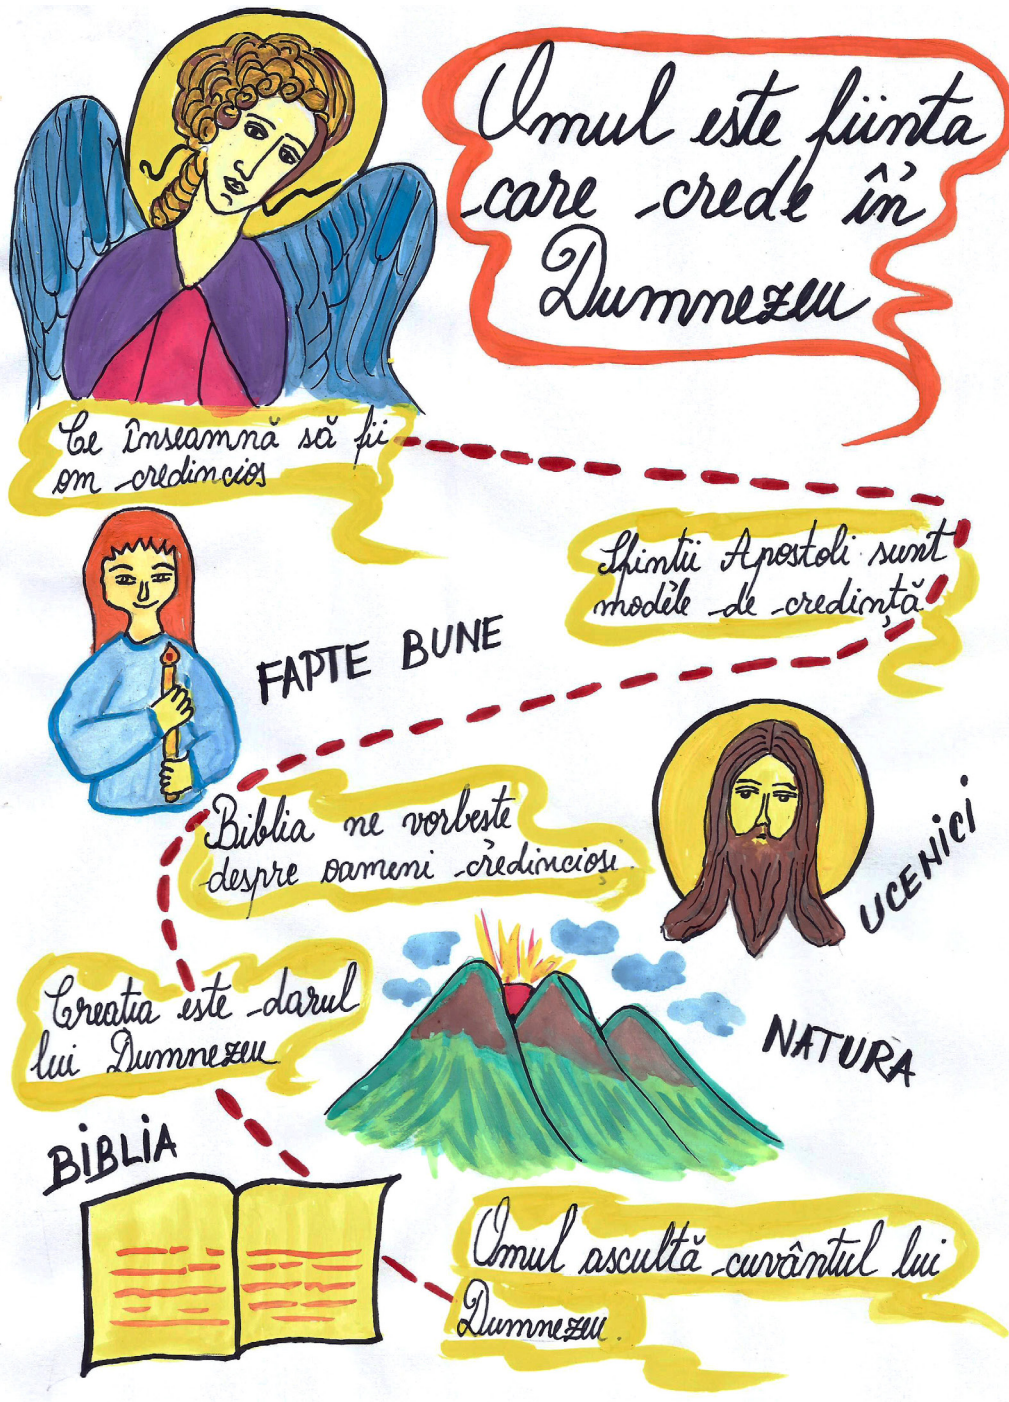 Omul este ființa
care crede în
Dumnezeu
Ce înseamnă să fii
om credincios
Sfintii Apostoli sunt
modele de credință
FAPTE BUNE
Biblia ne vorbeste
despre oameni credincioși.
UCENICI
Creatia este darul
lui Dumnezeu
NATURA
BIBLIA
Omul ascultă cuvântul lui
Dumnezeu.